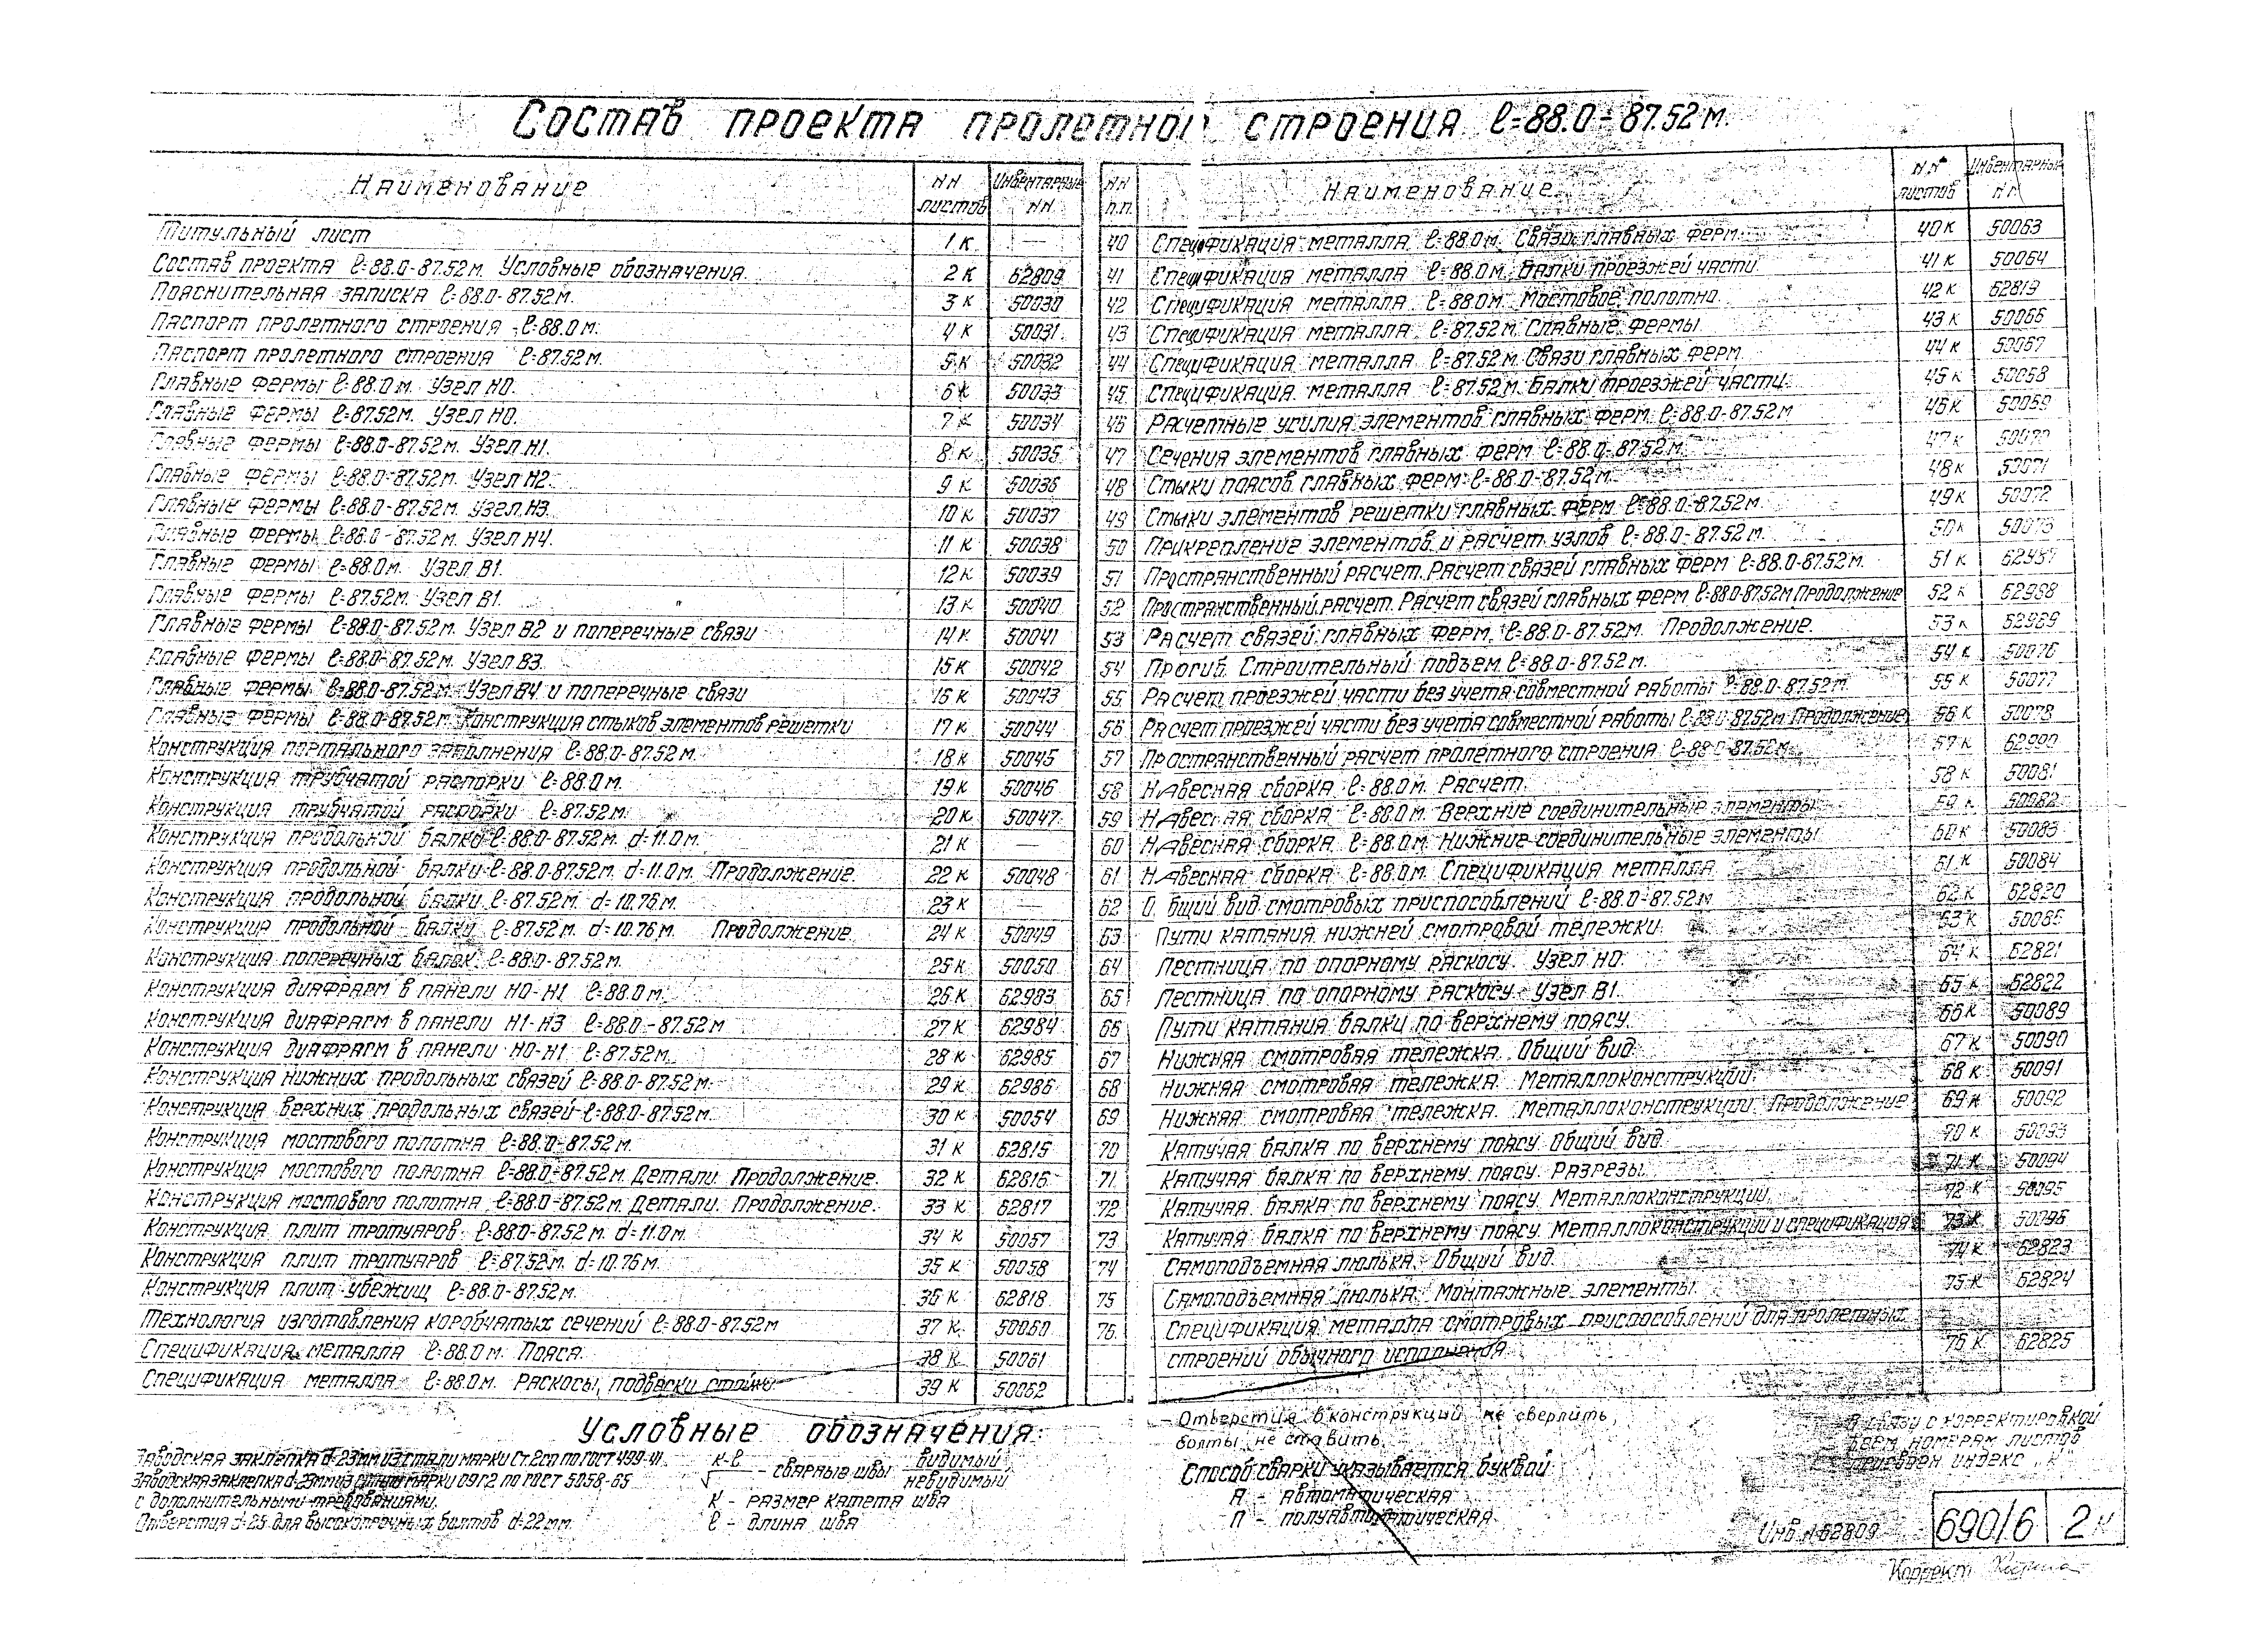 Состав проекта пролетног строения l=88.0-87.52м.
Наименование NN листов Инвентарные NN
Титульный лист 1к —
Состав проекта l=88.0-87.52м. Условные обозначения. 2к 62809
Пояснительная записка l=88.0-87.52м. 3к 50030
Паспорт пролетного строения l=88.0м. 4к 50031
Паспорт пролетного строения l=87.52м. 5к 50032
Главные фермы l=88.0м. Узел Н0. 6к 50033
Главные фермы l=87.52м. Узел Н0. 7к 50034
Главные фермы l=88.0-87.52м. Узел Н1. 8к 50035
Главные фермы l=88.0-87.52м. Узел Н2. 9к 50036
Главные фермы l=88.0-87.52м. Узел Н3. 10к 50037
Главные фермы l=88.0-87.52м. Узел Н4. 11к 50038
Главные фермы l=88.0м. Узел В1. 12к 50039
Главные фермы l=87.52м. Узел В1. 13к 50040
Главные фермы l=88.0-87.52м. Узел В2 и поперечные связи 14к 50041
Главные фермы l=88.0-87.52м. Узел В3. 15к 50042
Главные фермы l=88.0-87.52м. Узел В4 и поперечные связи 16к 50043
Главные фермы l=88.0-87.52м. Конструкция стыков элементов решетки 17к 50044
Конструкция портального заполнения l=88.0-87.52м. 18к 50045
Конструкция трубчатой распорки l=88.0м. 19к 50046
Конструкция трубчатой распорки l=87.52м. 20к 50047
Конструкция продольной балки l=88.0-87.52м. d=11.0м. 21к —
Конструкция продольной балки l=88.0-87.52м. d=11.0м. Продолжение. 22к 50048
Конструкция продольной балки l=87.52м. d=10.76м. 23к —
Конструкция продольной балки l=87.52м. d=10.76м. Продолжение. 24к 50049
Конструкция поперечных балок l=88.0-87.52м. 25к 50050
Конструкция диафрагм в панели Н0-Н1 l=88.0м. 26к 62983
Конструкция диафрагм в панели Н1-Н3 l=88.0-87.52м 27к 62984
Конструкция диафрагм в панели Н0-Н1 l=87.52м. 28к 62985
Конструкция нижних продольных связей l=88.0-87.52м. 29к 62986
Конструкция верхних продольных связей l=88.0-87.52м. 30к 50054
Конструкция мостового полотна l=88.0-87.52м. 31к 62815
Конструкция мостового полотна l=88.0-87.52м. Детали. Продолжение. 32к 62816
Конструкция мостового полотна l=88.0-87.52м. Детали. Продолжение. 33к 62817
Конструкция плит тротуаров l=88.0-87.52м. d=11.0м. 34к 50057
Конструкция плит тротуаров l=87.52м. d=10.76м. 35к 50058
Конструкция плит убежищ l=88.0-87.52м. 36к 62818
Технология изготовления коробчатых сечений l=88.0-87.52м 37к 50060
Спецификация металла l=88.0м. Пояса. 38к 50061
Спецификация металла l=88.0м. Раскосы, подвески стойки. 39к 50062
NN п.п. Наименование NN листов Инвентарные NN
40 Спецификация металла l=88.0м. Связи главных ферм. 40к 50063
41 Спецификация металла l=88.0м. Балки проезжей части. 41к 50064
42 Спецификация металла l=88.0м. Мостовое полотно. 42к 62819
43 Спецификация металла l=87.52м. Главные фермы. 43к 50066
44 Спецификация металла l=87.52м. Связи главных ферм 44к 50067
45 Спецификация металла l=87.52м. Балки проезжей части. 45к 50068
46 Расчетные усилия элементов главных ферм l=88.0-87.52м 46к 50069
47 Сечения элементов главных ферм l=88.0-87.52м. 47к 50070
48 Стыки поясов главных ферм l=88.0-87.52м. 48к 50071
49 Стыки элементов решетки главных ферм l=88.0-87.52м. 49к 50072
50 Прикрепление элементов и расчет узлов l=88.0-87.52м. 50к 50073
51 Пространственный расчет. Расчет связей главных ферм l=88.0-87.52м. 51к 62987
52 Пространственный расчет. Расчет связей главных ферм l=88.0-87.52м Продолжение 52к 62988
53 Расчет связей главных ферм l=88.0-87.52м. Продолжение. 53к 62989
54 Прогиб. Строительный подъем. l=88.0-87.52м. 54к 50076
55 Расчет проезжей части без учета совместной работы l=88.0-87.52м. 55к 50077
56 Расчет проезжей части без учета совместной работы l=88.0-87.52м Продолжение 56к 50078
57 Пространственный расчет пролетного строения l=88.0-87.52м. 57к 62990
58 Навесная сборка l=88.0м. Расчет. 58к 50081
59 Навесная сборка l=88.0м. Верхние соединительные элементы 59к 50082
60 Навесная сборка l=88.0м. Нижние соединительные элементы 60к 50083
61 Навесная сборка l=88.0м. Спецификация металла 61к 50084
62 Общий вид смотровых приспособлений l=88.0-87.52м 62к 62820
63 Пути катания нижней смотровой тележки. 63к 50086
64 Лестница по опорному раскосу. Узел Н0. 64к 62821
65 Лестница по опорному раскосу. Узел В1. 65к 62822
66 Пути катания балки по верхнему поясу. 66к 50089
67 Нижняя смотровая тележка. Общий вид. 67к 50090
68 Нижняя смотровая тележка. Металлоконструкции. 68к 50091
69 Нижняя смотровая тележка. Металлоконструкции. Продолжение 69к 50092
70 Катучая балка по верхнему поясу. Общий вид. 70к 50093
71 Катучая балка по верхнему поясу. Разрезы. 71к 50094
72 Катучая балка по верхнему поясу. Металлоконструкции. 72к 50095
73 Катучая балка по верхнему поясу. Металлоконструкции и спецификация 73к 50096
74 Самоподъемная люлька. Общий вид. 74к 62823
75 Самоподъемная люлька. Монтажные элементы. 75к 62824
76. Спецификация металла смотровых приспособлений для пролетных
строений обычного исполнения. 76к 62825
Условные обозначения:
Заводская заклепка d=23мм из стали марки Ст.2сп по ГОСТ 499-41
Заводская заклепка d=23мм из стали марки 09Г2 по ГОСТ 5058-65
с дополнительными требованиями.
Отверстия d=25 для высокопрочных болтов d=22мм.
к-l – сварные швы видимый
невидимый
К - размер катета шва
l - длина шва
- Отверстия в конструкций не сверлить,
болты не ставить.
Способ сварки указывается буквой
А - автоматическая
П - полуавтоматическая
В связи с корректировкой
ферм номерам листов
присвоен индекс „К"
Инв.N62809
690/6 2к
Коррект.